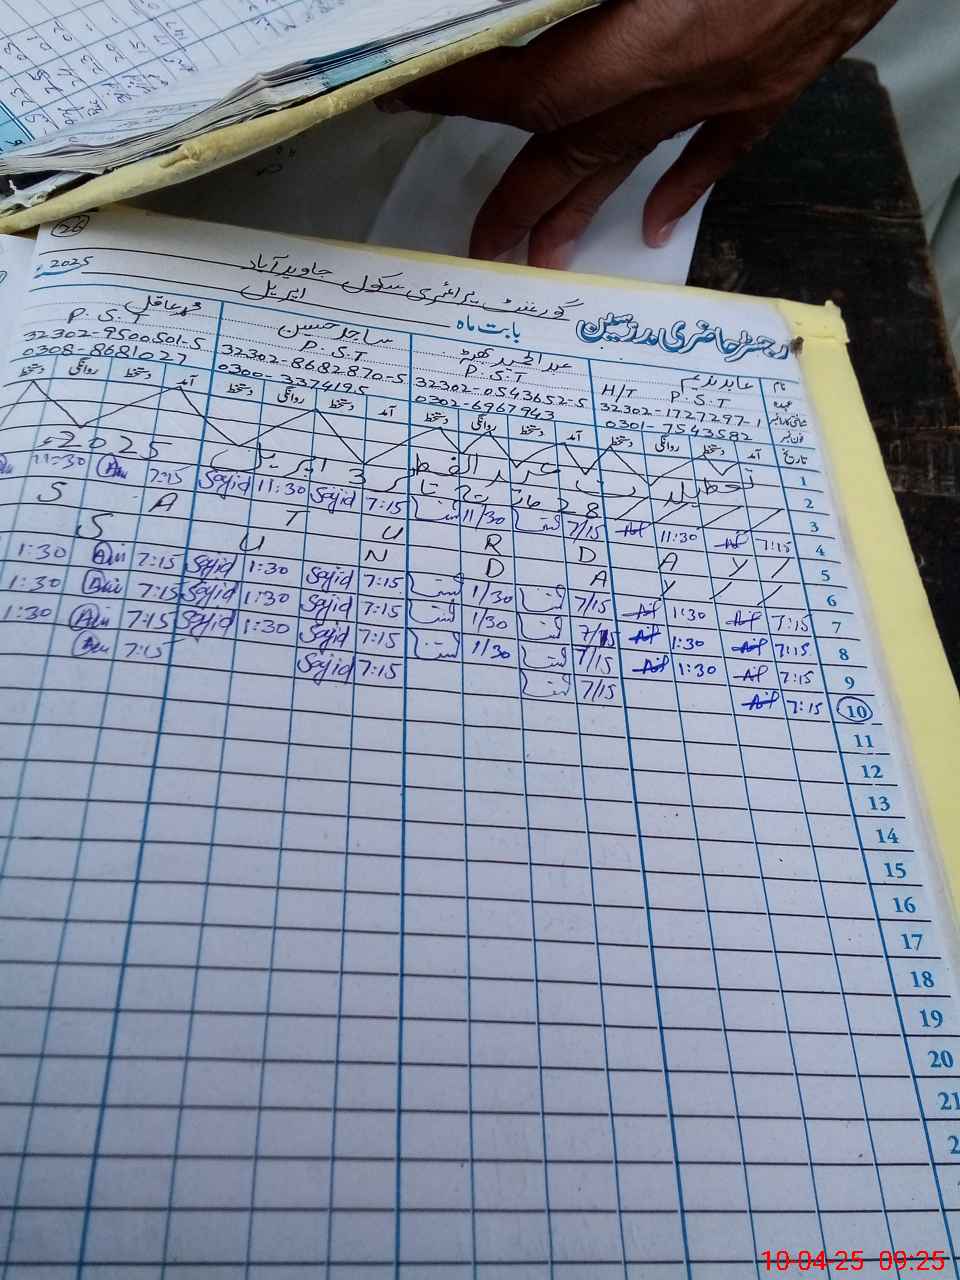 26
رجسٹر حاضری مدرسین گورنمنٹ پرائمری سکول جاوید آباد
بابت ماہ اپریل 2025ء
نام عابد ندیم عبدالحمید بھٹہ ساجد حسین محمد عاقل
عہدہ H/T P.S.T P.S.T P.S.T P.S.T
شناختی کارڈ نمبر 32302-1727297-1 32302-0543652-5 32302-8682870-5 32302-9500501-5
فون نمبر 0301-7543582 0302-6967943 0300-3374195 0308-8681027
تاریخ آمد دستخط روانگی دستخط آمد دستخط روانگی دستخط آمد دستخط روانگی دستخط آمد دستخط روانگی دستخط
1
2 تعطیلات عید الفطر
3 28 مارچ تا 3 اپریل 2025ء
4 7:15 11:30 7/15 11/30 7:15 Sajid 11:30 Sajid 7:15 11:30
5 S A T U R D A Y
6 S U N D A Y
7 7:15 1:30 7/15 1/30 7:15 Sajid 1:30 Sajid 7:15 1:30
8 7:15 1:30 7/15 1/30 7:15 Sajid 1:30 Sajid 7:15 1:30
9 7:15 1:30 7/15 1/30 7:15 Sajid 1:30 Sajid 7:15 1:30
10 7:15 7/15 7:15 Sajid 7:15
11
12
13
14
15
16
17
18
19
20
21
10-04-25 09:25